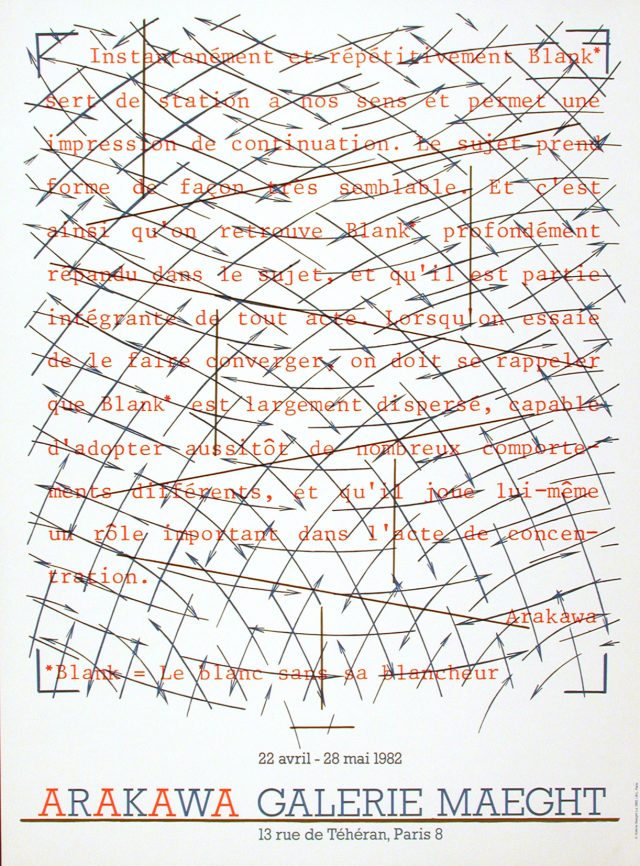 Instantanément et répétitivement Blank*
sert de station a nos sens et permet une
impression de continuation. Le sujet prend
forme de façon très semblable. Et c'est
ainsi qu'on retrouve Blank* profondément
répandu dans le sujet, et qu'il est partie
intégrante de tout acte. Lorsqu'on essaie
de le faire converger, on doit se rappeler
que Blank* est largement dispersé, capable
d'adopter aussitôt de nombreux comporte-
ments différents, et qu'il joue lui-même
un rôle important dans l'acte de concen-
tration.
Arakawa
*Blank = Le blanc sans sa blancheur
22 avril - 28 mai 1982
ARAKAWA GALERIE MAEGHT
13 rue de Téhéran, Paris 8